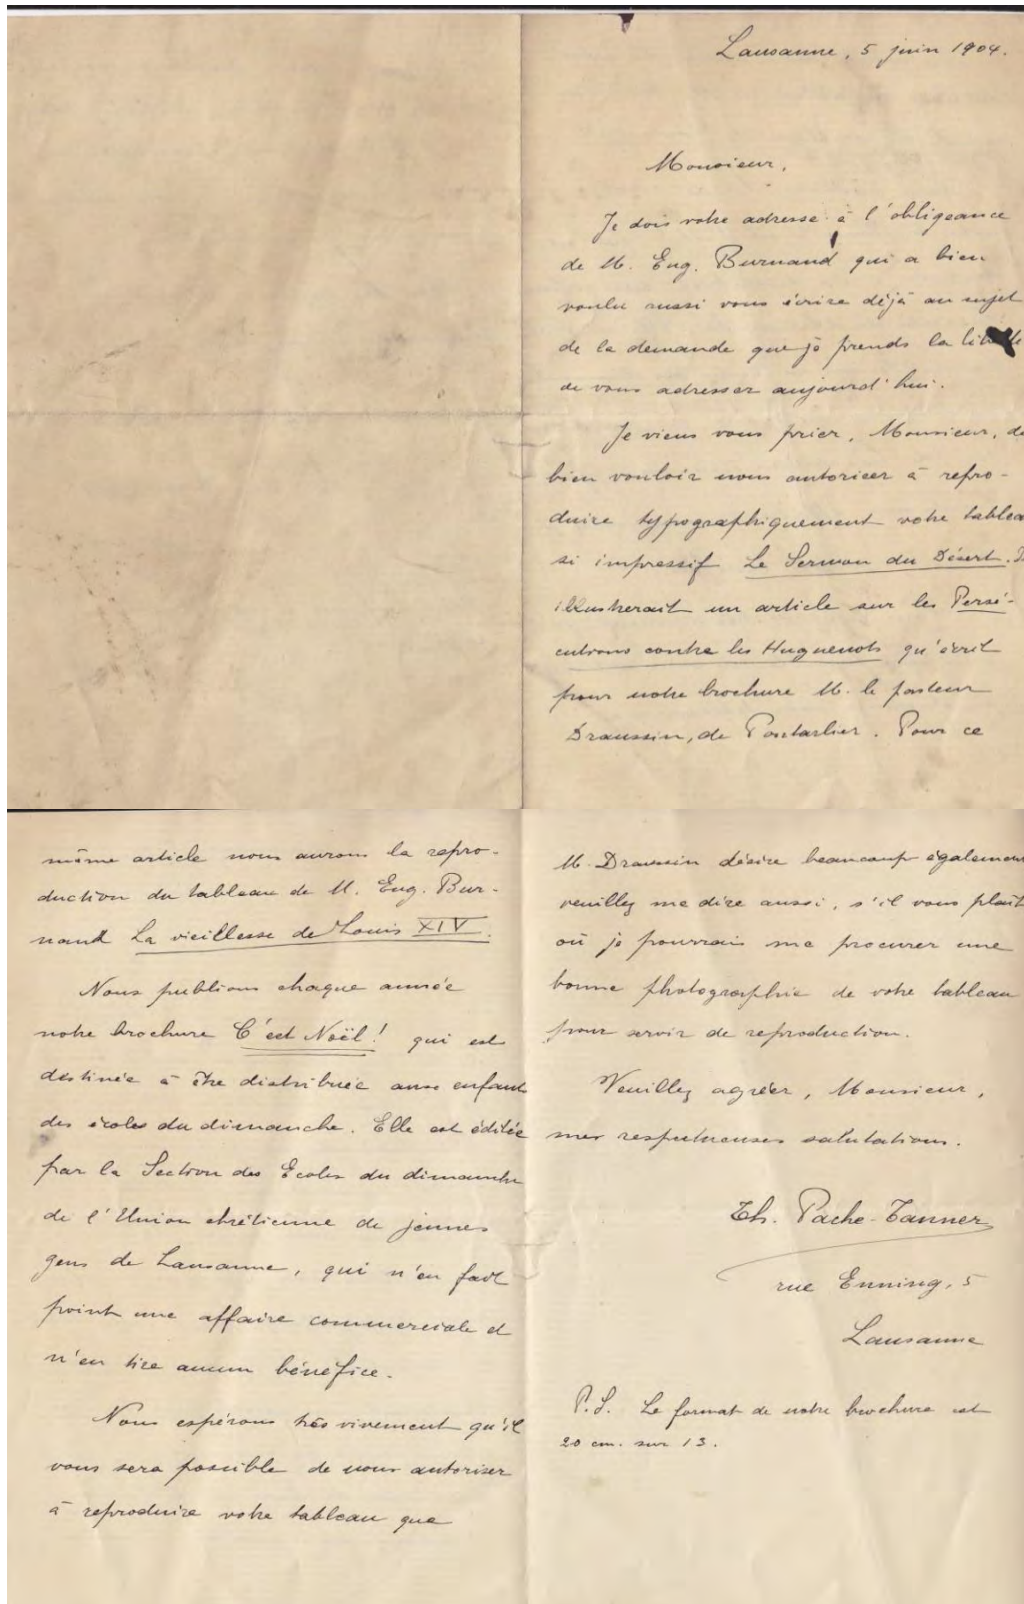 Lausanne, 5 juin 1904.
Monsieur,
Je dois votre adresse à l'obligeance
de M. Eug. Burnand qui a bien
voulu aussi vous écrire déjà au sujet
de la demande que je prends la
de vous adresser aujourd'hui.
Je viens vous prier, Monsieur, de
bien vouloir nous autoriser à repro-
duire typographiquement votre tablea
si impressif Le Sermon du Désert. I
illustrerait un article sur les Persé-
cutions contre les Huguenots qu'écrit
pour notre brochure M. le pasteur
Draussin, de Pontarlier. Pour ce
même article nous aurons la repro-
duction du tableau de M. Eug. Bur-
nand La vieillesse de Louis XIV.
Nous publions chaque année
notre brochure C'est Noël! qui est
destinée à être distribuée aux enfants
des écoles du dimanche. Elle est éditée
par la Section des Ecoles du dimanche
de l'Union chrétienne de jeunes
gens de Lausanne, qui n'en fait
point une affaire commerciale et
n'en tire aucun bénéfice.
Nous espérons très vivement qu'il
vous sera possible de nous autoriser
à reproduire votre tableau que
M. Draussin désire beaucoup également
veuillez me dire aussi, s'il vous plaît
où je pourrais me procurer une
bonne photographie de votre tableau
pour servir de reproduction.
Veuillez agréer, Monsieur,
mes respectueuses salutations.
Th. Pache-Tanner
rue Enning, 5
Lausanne
P.S. Le format de notre brochure est
20 cm. sur 13.